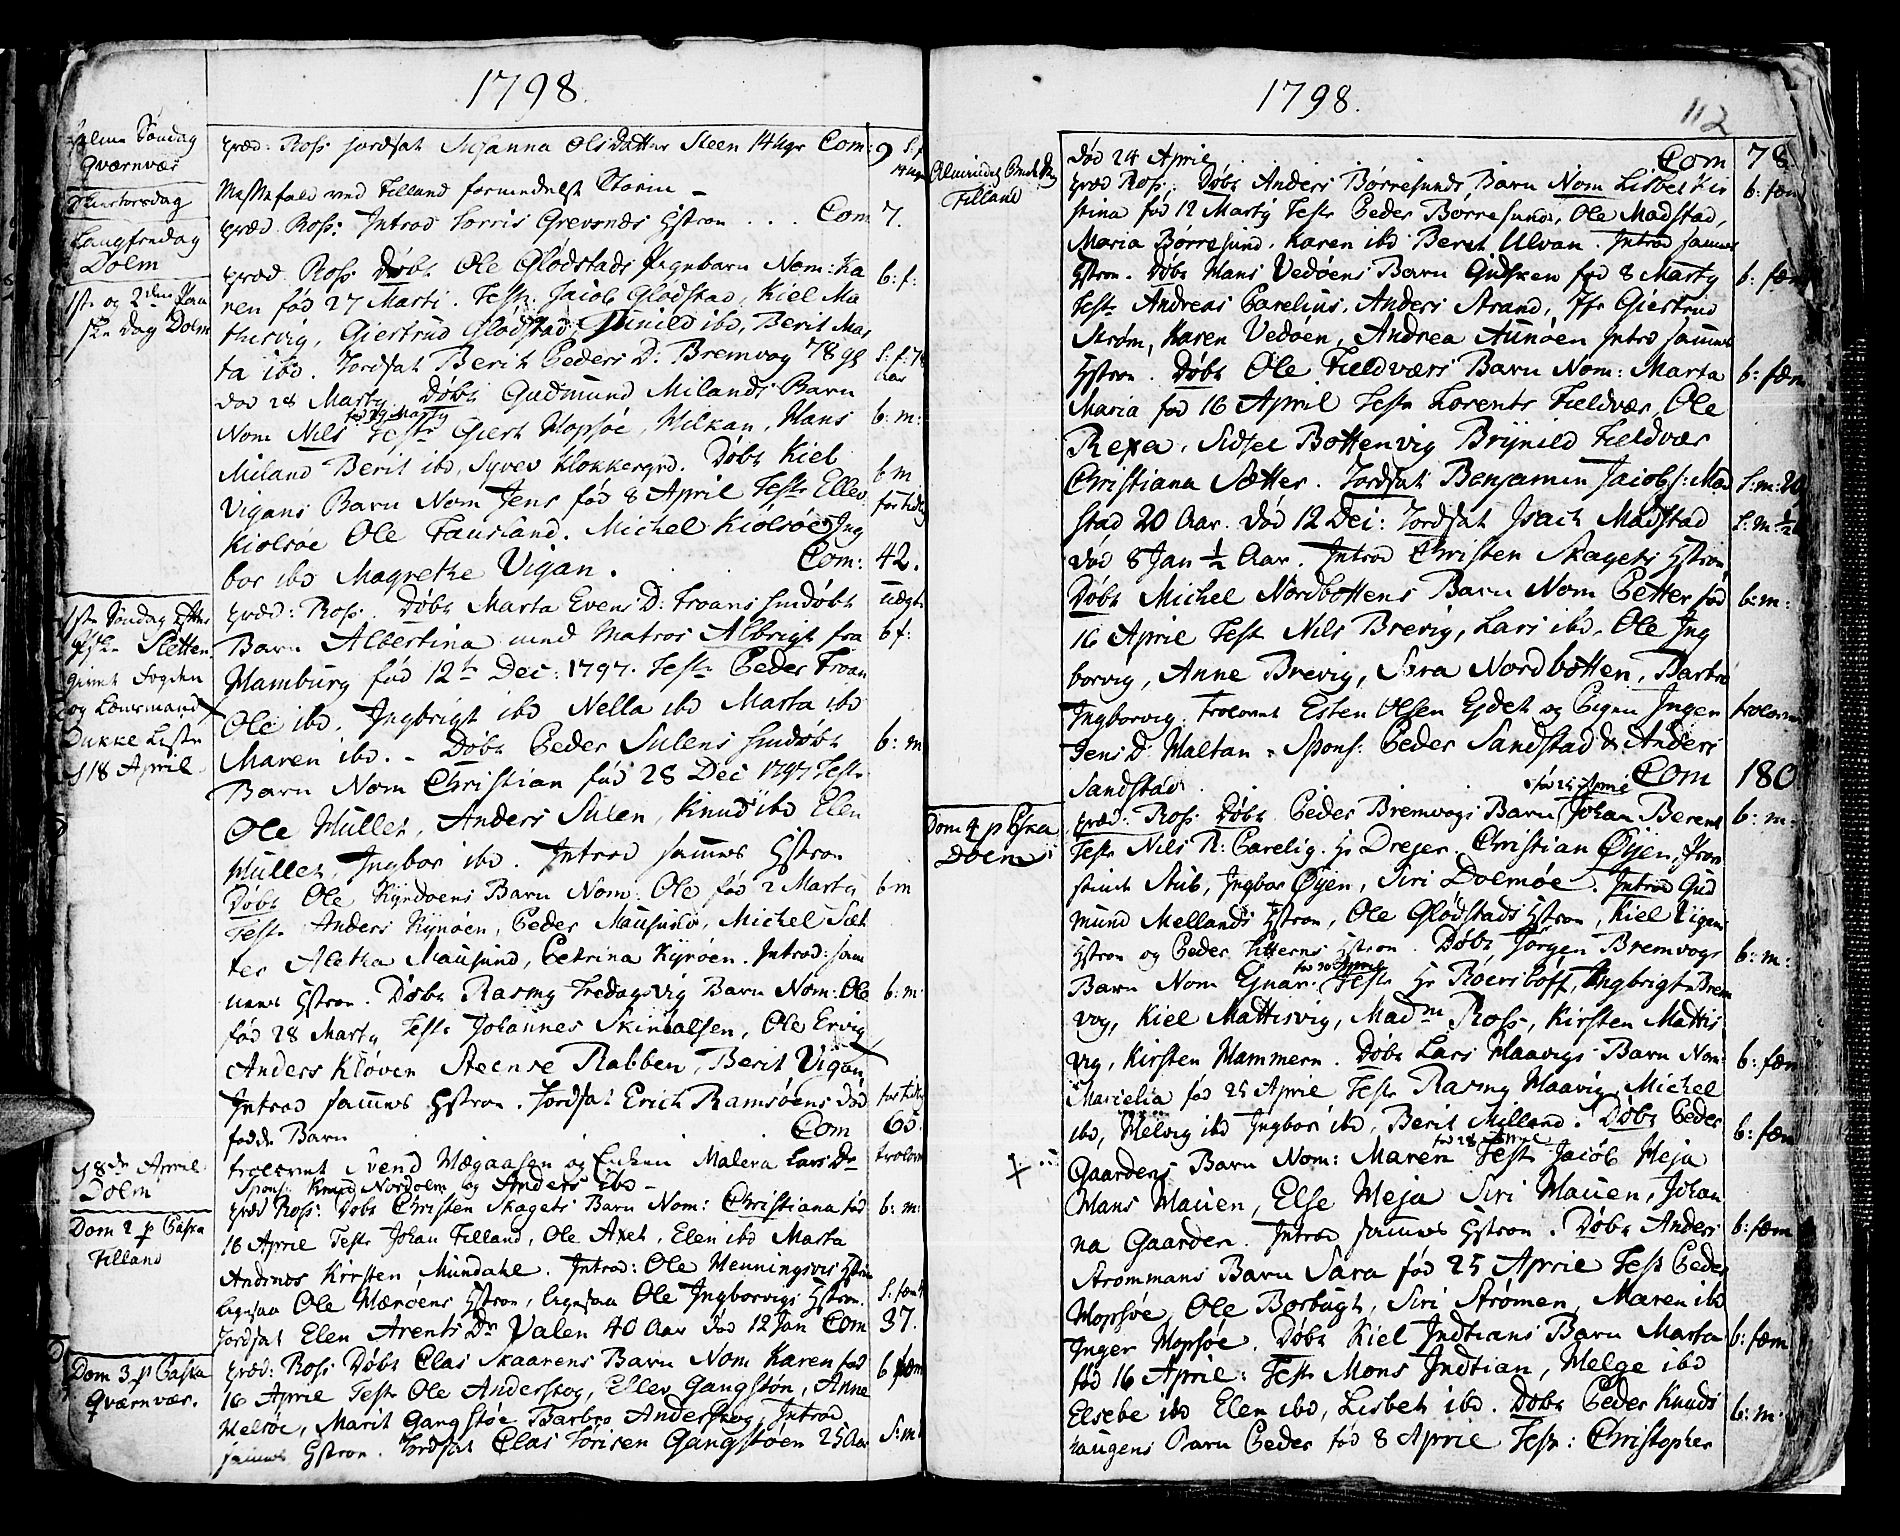 1798.
Palme Søndag
Qværnvær
præd: Ross jordsat Susanna Olsdatter Steen 14 uger Com: 9
Skiertorsdag
Messefald ved Filland formedelst Storm
Langfredag
Dolm
præd. Ross: Introd Torris Grevsnes Hstroe . . . Com 7.
1ste og 2den Paa
ske dag Dolm
præd. Ross Døbt Ole Glødstads Pigebarn Nom: Ka b: f:
ren fød 27 Marti. Test: Jacob Glødstad, Kiel Ma
thisvig, Giertrud Glødstad, Gunild ibd, Berit Mar
ta ibd. Jordsat Berit Peders D: Bremvog 78 gl S: f: 78 Aar
død 28 Marty. Døbt Gudmund Milands Barn
Nom Nils fød 29 Marty Teste Giert Mopsøe, Milkan, Hans b: m:
Miland Berit ibd, Syver Klokkergrd. Døbt Kiel
Vigans Barn Nom Jens fød 8 April Test Ellev b m
Kiolsøe Ole Fausland. Michel Kiolsøe Ing for tidlig
bor ibd Magrethe Vigan. Com: 42.
1ste Søndag Efter
Pske Sletten
givet Fogden
og Lensmand
Dukke Liste
d 18 April
præd: Ross. Døbt Marta Evens D: Froans hiemdøbt uægte
Barn Albertina med Matros Albrigt fra b f:
Hamburg fød 12te Dec: 1797. Test Peder Froan
Ole ibd. Ingbrigt ibd Nella ibd Marta ibd
Maren ibd. Døbt Peder Sulens hiemdøbt b: m
Barn Nom Christian fød 28 Dec 1797 Test
Ole Muller, Anders Sulen, Knud ibd Elen
Muller, Ingbor ibd. Introd sammes Hstroe
Døbt Ole Kyndøens Barn Nom: Ole fød 2 Marty b m
Test Anders Kyrøen, Peder Mausund, Michel Sæt
ter Aletha Mausund, Petrina Kyrøen. Introd: sam
mes Hstroe. Døbt Rasmy Fredagsvig Barn Nom: Ole b: m:
fød 28 Marty Test Johannes Skinhalsen, Ole Ervig
Anders Kløven Steense Rabben, Berit Vigan
Introd sammes Hstroe. Jordsat Erich Ramsøens død for tidlig
fødde Barn Com 65.
d 18de April
Dolm
trolovet Svend Hægaasen og Enken Malena Lars Dr trolov
Spons: Knud Nordolm og Anders ibd
Dom 2 p Paska
Filland
præd Ross: Døbt Christen Skagets Barn Nom: Christiana fød b: m:
16 April Test Johan Filland, Ole Axet, Elen ibd Marta
Andenes Kirsten Mundahl. Introd: Ole Henningsvis Hstroe
ligesaa Ole Mærøens Hstroe, ligesaa Ole Ingborvigs Hstroe.
Jordsat Elen Arents Dr Valen 40 Aar død 12 Jan Com 37.
Dom 3 p Paska
Qværnvær.
præd: Ross Døbt Clas Skaarens Barn Nom Karen fød b fæm
16 April Test Ole Anderskog, Ellev Gangstøn, Anne
Helsøe, Marit Gangstøe Barbro Anderskog, Introd
sammes Hstroe. Jordsat Clas Tørisen Gangstøen 25 Aar S: m
1798.
112
død 24 April Com 78.
Filland
præd Ross. Døbt Anders Børresunds Barn Nom Lisbet Kir b: fæm
stina fød 12 Marty Test Peder Børresund, Ole Madstad,
Maria Børresund, Karen ibd Beret Ulvan. Introd sammes
Hstroe. Døbt Hans Vedøens Barn Gidsken fød 8 Marty b: fæm
Test Andreas Parelius, Anders Strand, Jfr Giertrud
Strøm, Karen Vedøen, Andrea Aunøen Introd sammes
Hstroe. Døbt Ole Fieldværs Barn Nom: Marta b: fæm
Maria fød 16 April Test Lorents Fieldvær, Ole
Rexa, Sidsel Bottenvig Brynild Fieldvær
Christiana Sætter. Jordsat Benjamin Jacobs: Mad S: m: 20
stad, 20 Aar. død 12 Dec: Jordsat Isach Madstad S: m ½
død 8 Jan ½ Aar. Introd Christen Skagets Hstroe
Døbt Michel Nordbottens Barn Nom Petter fød b: m:
16 April Test Nils Brevig, Lars ibd. Ole Ing
borvig, Anne Brevig, Sara Nordbotten, Barbro
Ingborvig. Trolovet Esten Olsen Ejdet og Pigen Inger trolovet
Jens D Maltan. Spons: Peder Sandstad & Anders
Sandstad Com 180
Dom 4 p Pska
Dolm
præd: Ross. Døbt Peder Bremvogs Barn Johan Berent fød 25 April b: m:
Test Nils R: Parelig. Hr Dreyer. Christian Øyen, Jom
Stub, Ingbor Øyen, Siri Dolmøe. Introd Gud
mund Mellands Hstroe, Ole Glødstads Hstroe, Kiel Vigans
Hstroe og Peder Titterens Hstroe. Døbt Jørgen Bremvogs b: m:
Barn Nom Ejnar fød 20 April Test Hr Roersboff, Ingbrigt Brem
vog, Kiel Mattisvig, Madm Ross, Kirsten Mattis
vig, Kirsten Hammern. Døbt Lars Haavigs Barn Nom: b: fæm
Marielia fød 25 April Test Rasmy Haavig, Michel
ibd, Helvig ibd Ingbor ibd, Berit Milland. Døbt Peder b: fæm
Gaardens Barn Nom: Maren fød 28 April Test Jacob Meja
Hans Hauen, Else Meja Siri Hauen, Johan
na Gaarden. Introd sammes Hstroe. Døbt Anders b: fæm
Strommans Barn Sara fød 25 April Test Peder
Mopsøe, Ole Borbugt, Siri Strømen, Maren ibd
Inger Mopsøe. Døbt Kiel Indtians Barn Marta b: fæm
fød 16 April: Test Mons Indtian, Helge ibd
Elsebe ibd Elen ibd, Lisbet ibd. Døbt Peder Knuds b: m:
haugens Barn Peder fød 8 April Test: Christopher